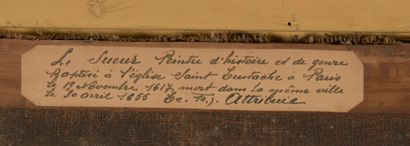 Le Sueur Peintre d'histoire et de genre
Baptisé à l'église Saint Eustache à Paris
le 19 Novembre 1617, mort dans la même ville
le 30 Avril 1655 (Ec. Fr.). Attribué